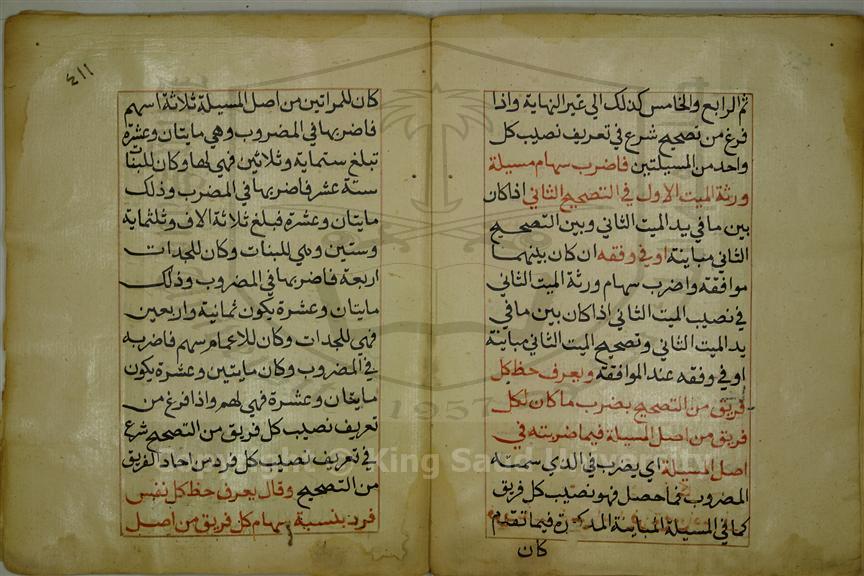 ثم الرابع والخامس كذلك الى غير النهاية واذا
فرغ من تصحيح شرع في تعريف نصيب كل
واحد من المسيلتين فاضرب سهام مسيلة
ورثة الميت الاول في التصحيح الثاني اذا كان
بين ما في يد الميت الثاني وبين التصحيح
الثاني مباينة او في وفقه ان كان بينهما
موافقة واضرب سهام ورثة الميت الثاني
في نصيب الميت الثاني اذا كان بين ما في
يد الميت الثاني وتصحيح الميت الثاني مباينة
او في وفقه عند الموافقة ويعرف حظ كل
فريق من التصحيح بضرب ما كان لكل
فريق من اصل المسيلة فيما ضربته في
اصل المسيلة اي يضرب في الذي سمته
المضروب فما حصل فهو نصيب كل فريق
كما في المسيلة المباينة المذكورة فيما تقدم
كان
٤١١
كان للمراتين من اصل المسيلة ثلاثة اسهم
فاضربها في المضروب وهي مايتان وعشرة
تبلغ ستماية وثلاثين فهي لها وكان للبنات
ستة عشر فاضربها في المضرب وذلك
مايتان وعشرة فبلغ ثلاثة الاف وثلثماية
وستين وهي للبنات وكان للجدات
اربعة فاضربها في المضروب وذلك
مايتان وعشرة يكون ثمانية واربعين
فهي للجدات وكان للاعمام سهم فاضربه
في المضروب وكان مايتين وعشرة يكون
مايتان وعشرة فهي لهم واذا فرغ من
تعريف نصيب كل فريق من التصحيح شرع
في تعريف نصيب كل فرد من احاد الفريق
من التصحيح وقال يعرف حظ كل نفس
فرد بنسبة سهام كل فريق من اصل
1957
King Saud University